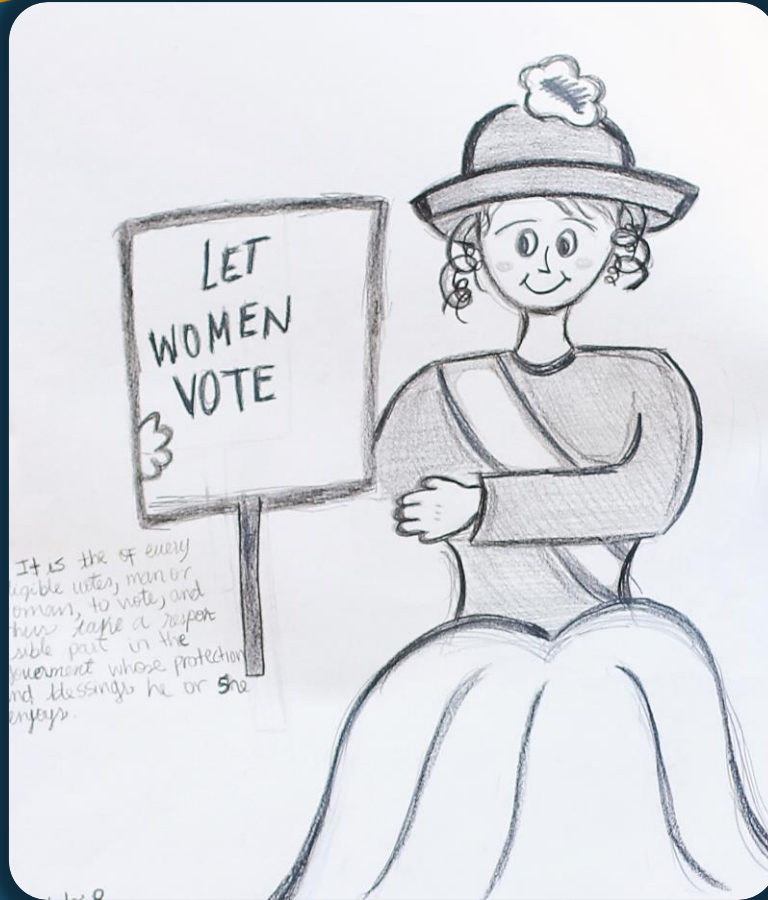 LET
WOMEN
VOTE
It is the of every
ligible voter, man or
oman, to vote, and
hus take a respon
sible part in the
overment whose protection
nd blessings he or she
enjoys.